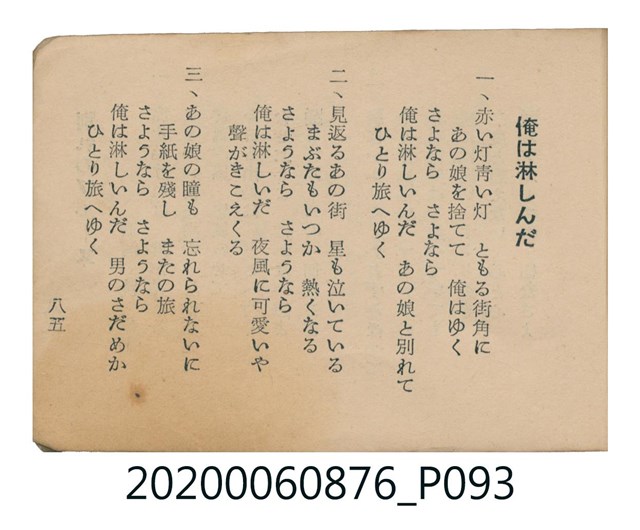 俺は淋しんだ
一、赤い灯青い灯　ともる街角に
あの娘を捨てて　俺はゆく
さよなら　さよなら
俺は淋しいんだ　あの娘と別れて
ひとり旅へゆく
二、見返るあの街　星も泣いている
まぶたもいつか　熱くなる
さようなら　さようなら
俺は淋しいだ　夜風に可愛いや
聲がきこえくる
三、あの娘の瞳も　忘れられないに
手紙を残し　またの旅
さようなら　さようなら
俺は淋しいんだ　男のさだめか
ひとり旅へゆく
八五
20200060876_P093